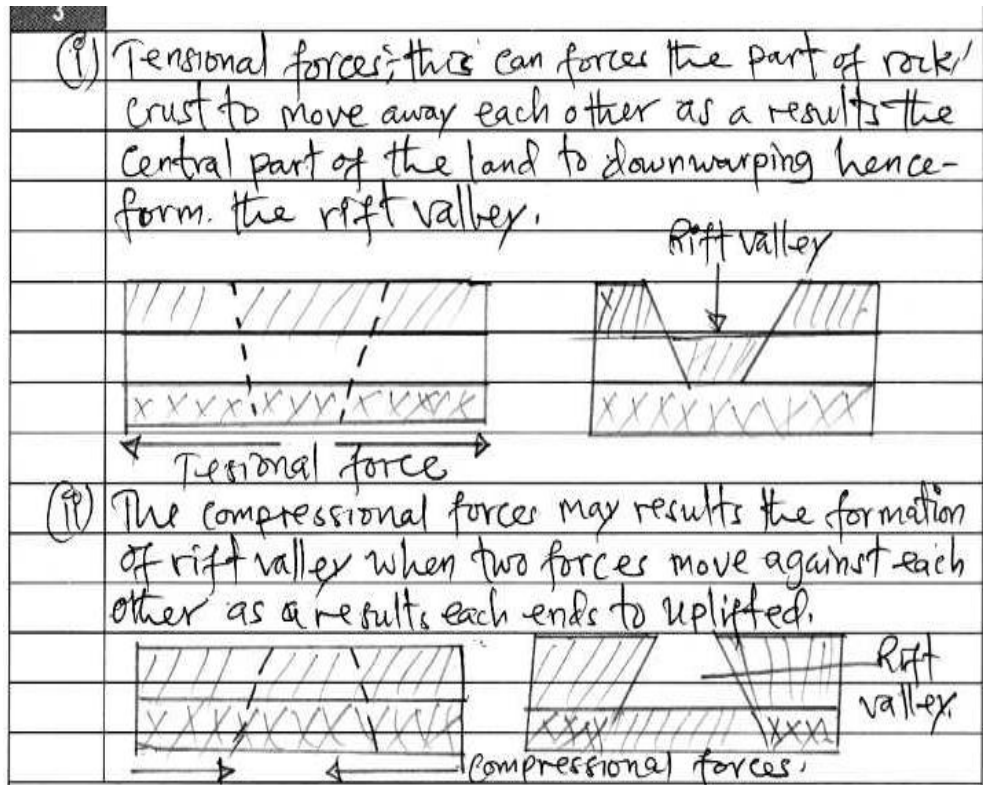 3
(i) Tensional forces; this can forces the part of rock/
crust to move away each other as a results the
central part of the land to downwarping hence-
form. the rift valley.
Rift valley
x x x x x x x x x x x x
x
x x x x x x x x x
Tesional force
(ii) The compressional forces may results the formation
of rift valley when two forces move against each
other as a results each ends to uplifted.
Rift
valley.
compressional forces.